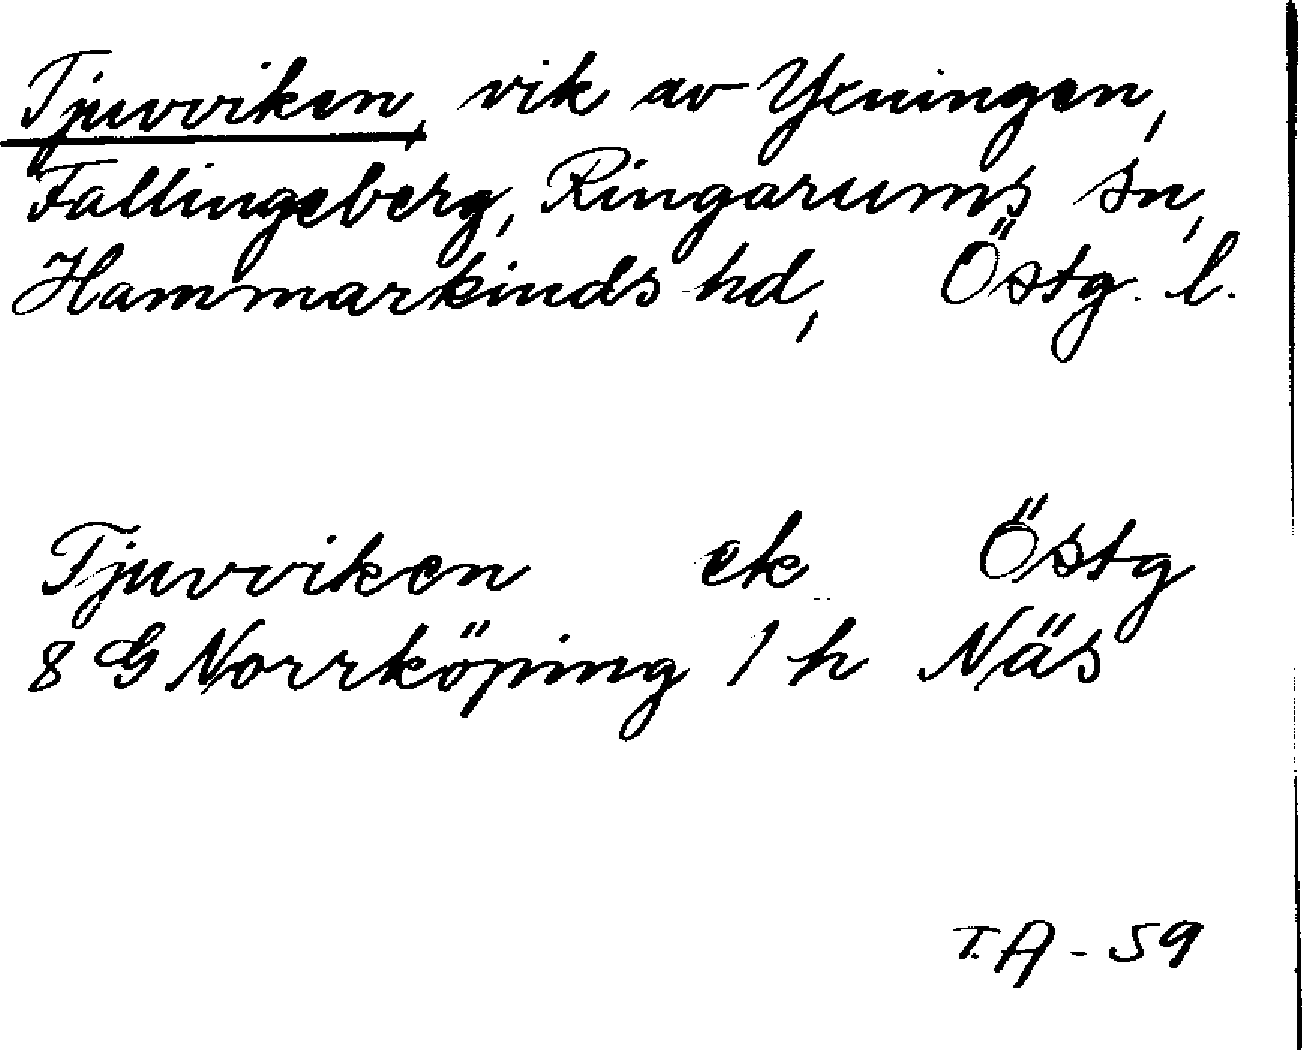 Tjuvviken, vik av Yxningen,
Fallingeberg, Ringarums sn,
Hammarkinds hd, Östg. l.
Tjuvviken ek Östg
8 G Norrköping 1 h Näs
T.A - 59